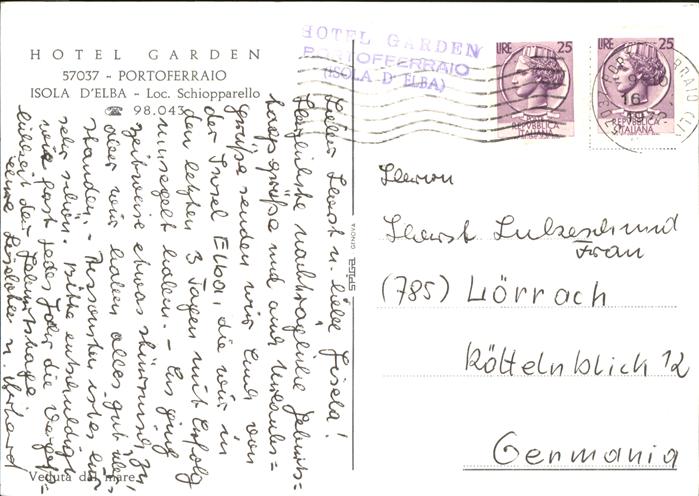 HOTEL GARDEN
57037 - PORTOFERRAIO
ISOLA D'ELBA - Loc. Schiopparello
☎ 98.043
HOTEL GARDEN
PORTOFERRAIO
(ISOLA D'ELBA)
LIRE 25
REPVBBLICA
ITALIANA
LIRE 25
REPVBBLICA
ITALIANA
Lieber Horst u. liebe Gisela!
Herzlichste nachträgliche Geburts=
tagsgrüße und auch Urlaubs=
grüße senden wir Euch von
der Insel Elba, die wir in
den letzten 3 Tagen mit Erfolg
umsegelt haben. - Es ging
zeitweise etwas stürmisch zu,
aber wir haben alles gut über=
standen. - Ansonsten ist es hier
sehr schön. Bitte entschuldigt
wie fast jedes Jahr die Vergeß=
lichkeit der Geburtstage
Eure Liselotte u. Gerhard
Veduta dal mare
SPIGA GENOVA
Herrn
Horst
Frau
(785) Lörrach
Röttelnblick 12
Germania